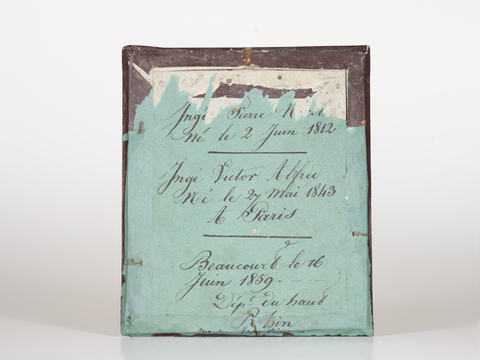 Ingé Pierre
Né le 2 Juin 1812
Ingé Victor Alfred
Né le 27 Mai 1843
A Paris
Beaucourt le 16
Juin 1859
Dépt. du haut
Rhin